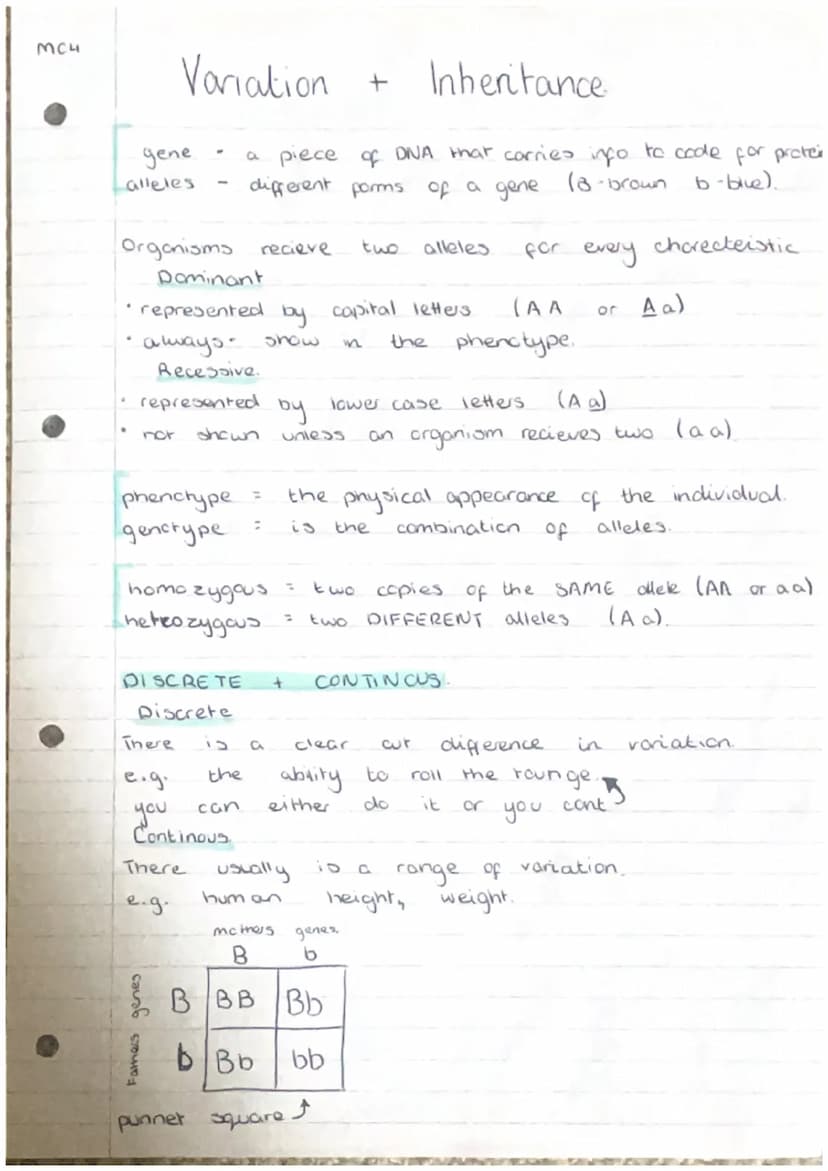 MC4
Variation + Inheritance
gene - a piece of DNA that carries info to code for protein
alleles - different forms of a gene (B-brown b-blue).
Organisms recieve two alleles for every charecteistic
Dominant
• represented by capital letters (AA or Aa)
• always show in the phenotype.
Recessive.
• represented by lower case letters (Aa)
• not shown unless an organism recieves two (aa)
phenotype = the physical appearance of the individual.
genotype = is the combination of alleles.
homozygous = two copies of the SAME allele (AA or aa)
hetrozygous = two DIFFERENT alleles (Aa).
DISCRETE + CONTINOUS.
Discrete
There is a clear cut difference in variation.
e.g. the ability to roll the tounge.
you can either do it or you cant
Continous.
There usually is a range of variation.
e.g. human height, weight.
mothers genes.
B b
Fathers genes
B BB Bb
b Bb bb
punner square